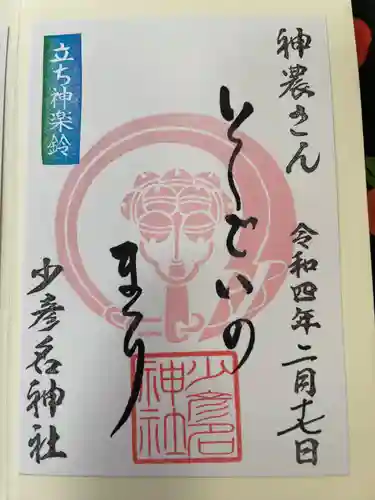 神農さん
令和四年二月十七日
まつり
少彦名神社
立ち神楽鈴
少彦名
神社